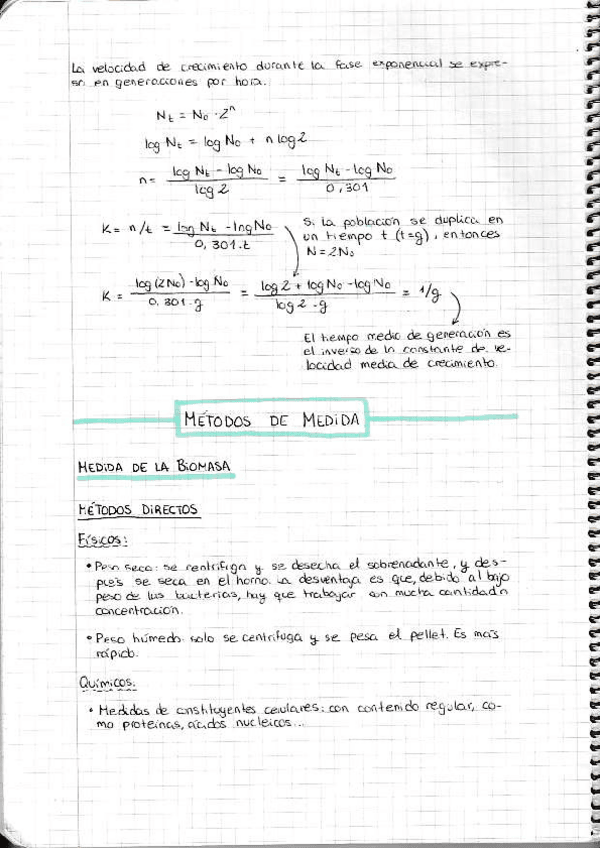 La velocidad de crecimiento durante la fase exponencial se expre-
sa en generaciones por hora.
Nt = No · 2^n
log Nt = log No + n log 2
n = (log Nt - log No) / log 2 = (log Nt - log No) / 0,301
K = n/t = (log Nt - log No) / 0,301·t
Si la población se duplica en
un tiempo t (t=g), entonces
N = 2No
K = (log (2No) - log No) / 0,301·g = (log 2 + log No - log No) / log 2 · g = 1/g
El tiempo medio de generación es
el inverso de la constante de ve-
locidad media de crecimiento.
MÉTODOS DE MEDIDA
MEDIDA DE LA BIOMASA
MÉTODOS DIRECTOS
Físicos:
• Peso seco: se centrifuga y se desecha el sobrenadante, y des-
pués se seca en el horno. La desventaja es que, debido al bajo
peso de las bacterias, hay que trabajar con mucha cantidad o
concentración.
• Peso húmedo: solo se centrifuga y se pesa el pellet. Es más
rápido.
Químicos:
• Medidas de constituyentes celulares: con contenido regular, co-
mo proteínas, ácidos nucleicos...